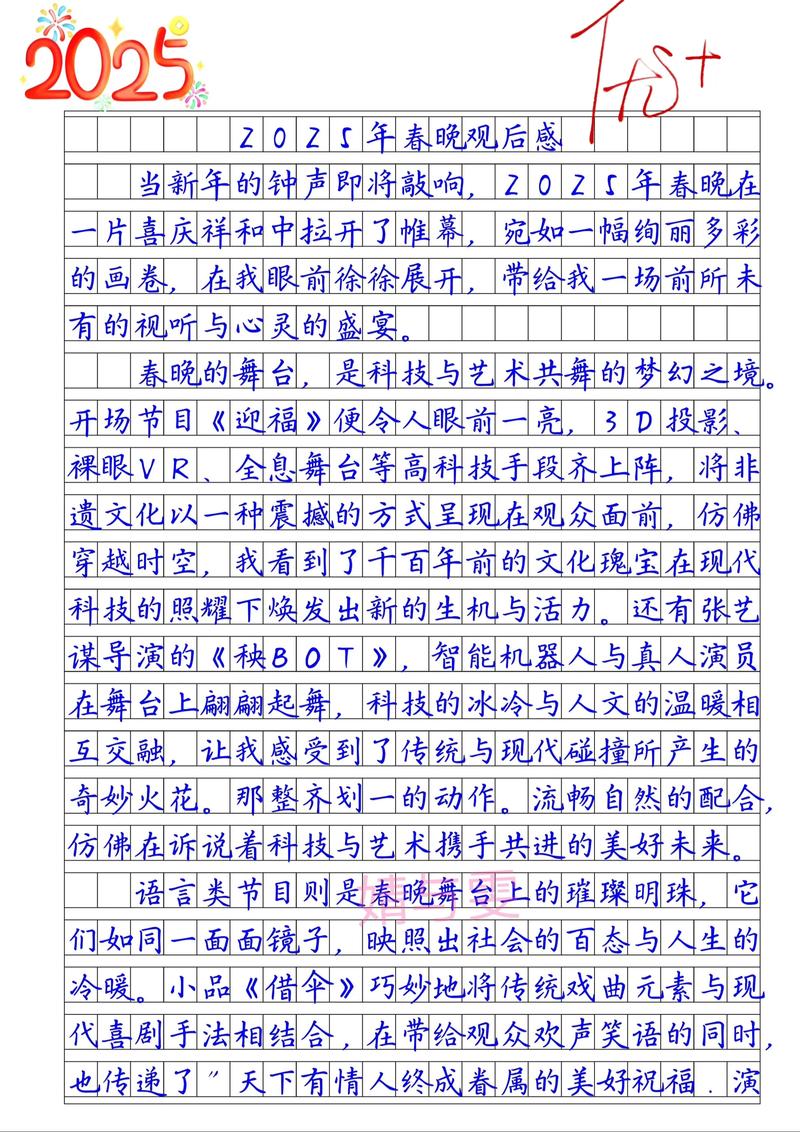 2025
优+
2025年春晚观后感
当新年的钟声即将敲响，2025年春晚在
一片喜庆祥和中拉开了帷幕，宛如一幅绚丽多彩
的画卷，在我眼前徐徐展开，带给我一场前所未
有的视听与心灵的盛宴。
春晚的舞台，是科技与艺术共舞的梦幻之境。
开场节目《迎福》便令人眼前一亮，3D投影、
裸眼VR、全息舞台等高科技手段齐上阵，将非
遗文化以一种震撼的方式呈现在观众面前，仿佛
穿越时空，我看到了千百年前的文化瑰宝在现代
科技的照耀下焕发出新的生机与活力。还有张艺
谋导演的《秧BOT》，智能机器人与真人演员
在舞台上翩翩起舞，科技的冰冷与人文的温暖相
互交融，让我感受到了传统与现代碰撞所产生的
奇妙火花。那整齐划一的动作。流畅自然的配合，
仿佛在诉说着科技与艺术携手共进的美好未来。
语言类节目则是春晚舞台上的璀璨明珠，它
们如同一面面镜子，映照出社会的百态与人生的
冷暖。小品《借伞》巧妙地将传统戏曲元素与现
代喜剧手法相结合，在带给观众欢声笑语的同时，
也传递了"天下有情人终成眷属的美好祝福.演
婧与雯